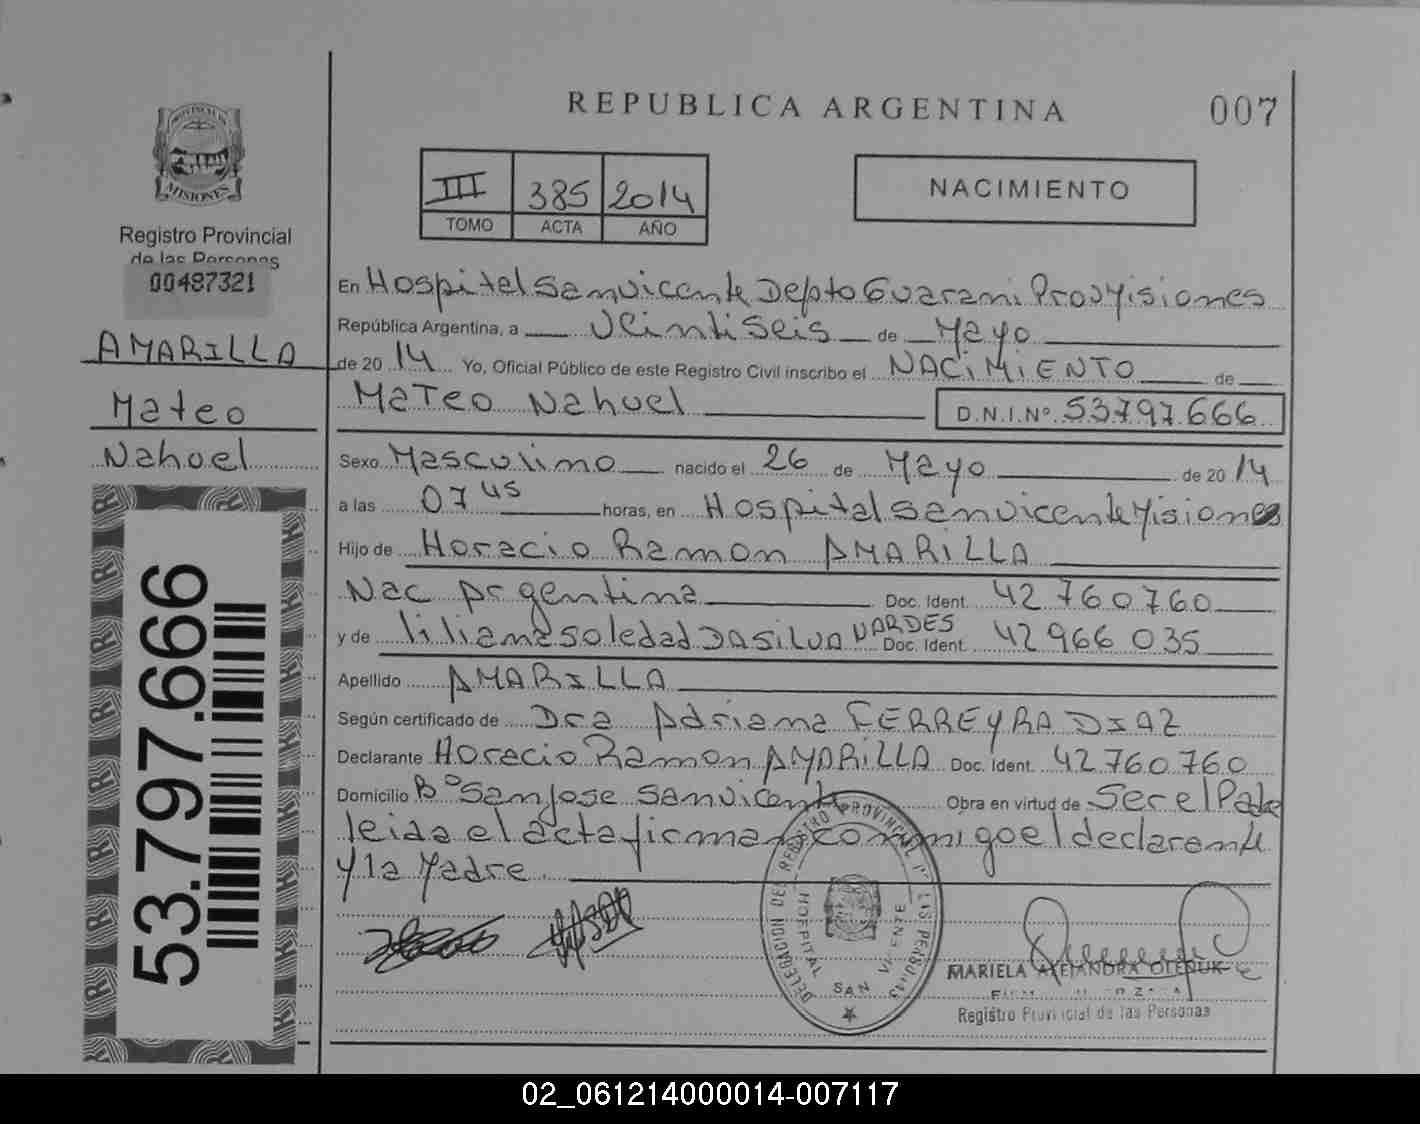 REPUBLICA ARGENTINA
007
PROVINCIA DE
MISIONES
Registro Provincial
de las Personas
00487321
AMARILLA
Mateo
Nahuel
53.797.666
III 385 2014
TOMO ACTA AÑO
NACIMIENTO
En Hospital San Vicente Depto Guarani Prov Misiones
República Argentina, a Veintiseis de Mayo
de 2014 Yo, Oficial Público de este Registro Civil inscribo el NACIMIENTO de
MaTeo Nahuel D.N.I.Nº 53.797.666
Sexo Masculino nacido el 26 de Mayo de 2014
a las 07 45 horas, en Hospital San Vicente Misiones
Hijo de Horacio Ramon AMARILLA
Nac Argentina Doc. Ident. 42 760 760
y de liliana Soledad DA SILVA VARDES Doc. Ident. 42 966 035
Apellido AMARILLA
Según certificado de Dra Adriana FERREYRA DIAZ
Declarante Horacio Ramon AMARILLA Doc. Ident. 42 760 760
Domicilio Bº San Jose San Vicente Obra en virtud de Ser el Padre
leida el acta firman conmigo el declarante
y la Madre
DELEGACION DEL REGISTRO PROVINCIAL DE LAS PERSONAS
HOSPITAL SAN VICENTE
MARIELA ALEJANDRA
Registro Provincial de las Personas
02_061214000014-007117